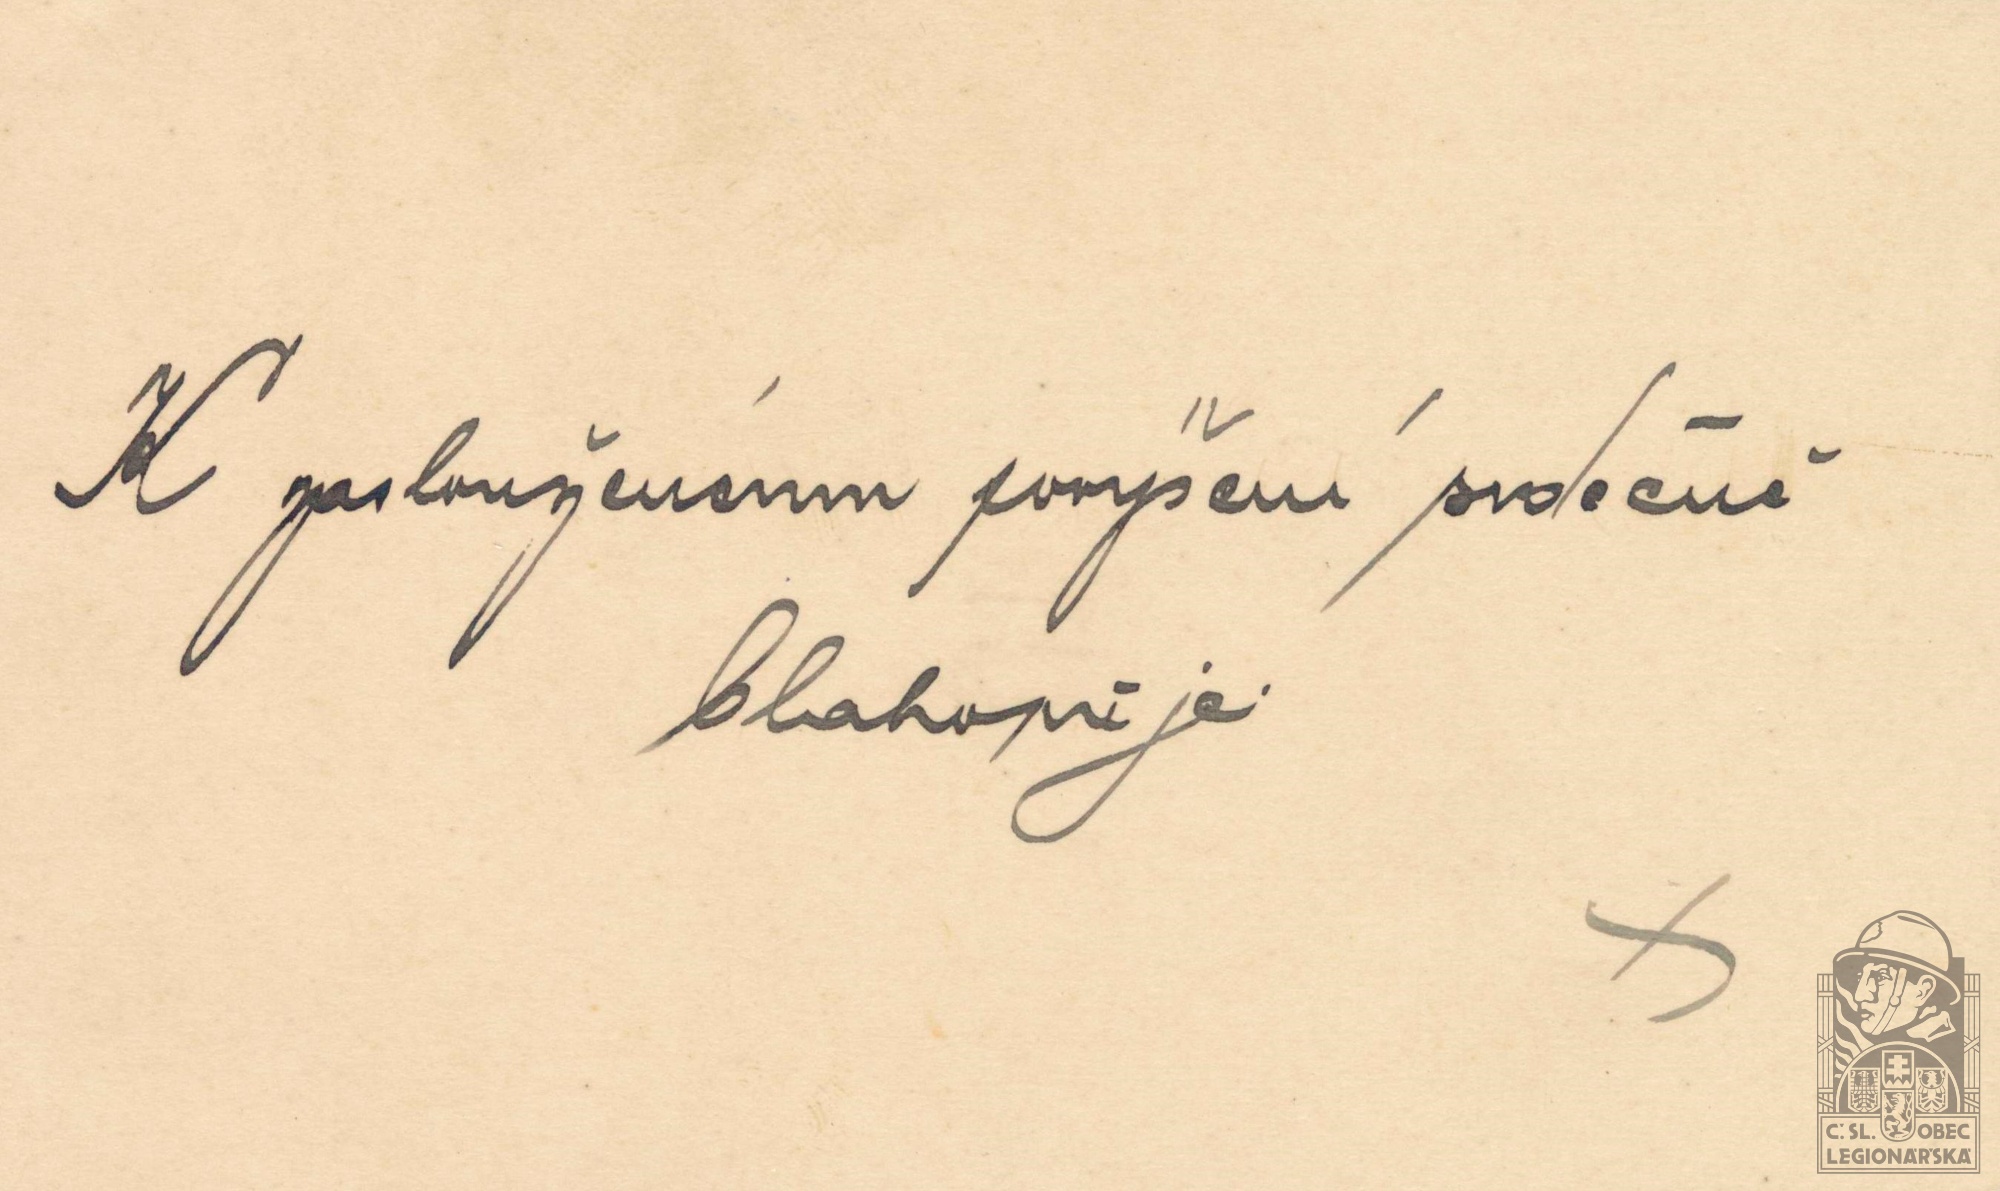 K zaslouženému povýšení srdečně
blahopřeje
Č.SL. OBEC
LEGIONÁŘSKÁ